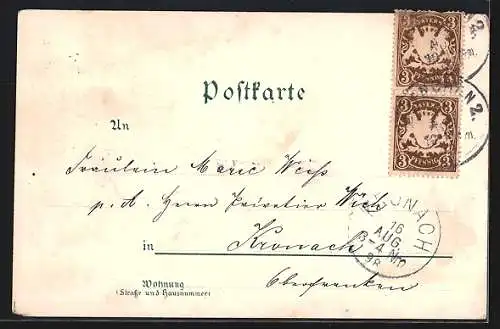 BAYERN
3 3
PFENNIG
BAYERN
3 3
PFENNIG
Postkarte
An
Fräulein Marie Weiß
p. A. Herrn Privatier Weiß
in Kronach
Oberfranken
Wohnung
(Straße und Hausnummer)
KRONACH
16
AUG.
3-4 NM
98